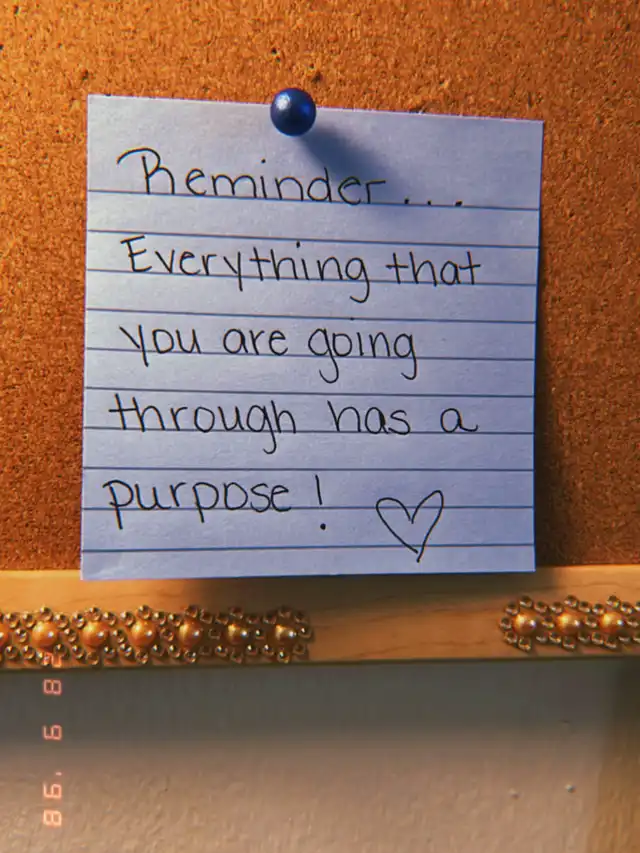 Reminder...
Everything that
you are going
through has a
purpose!